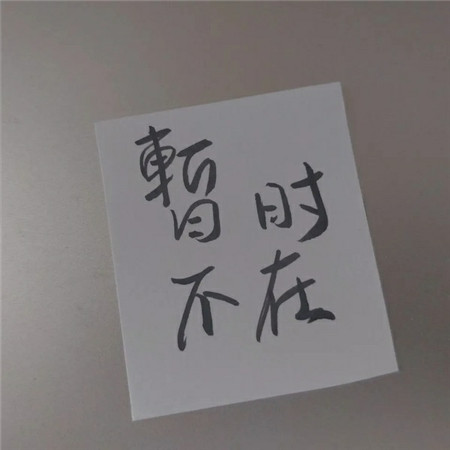 暫时
不在